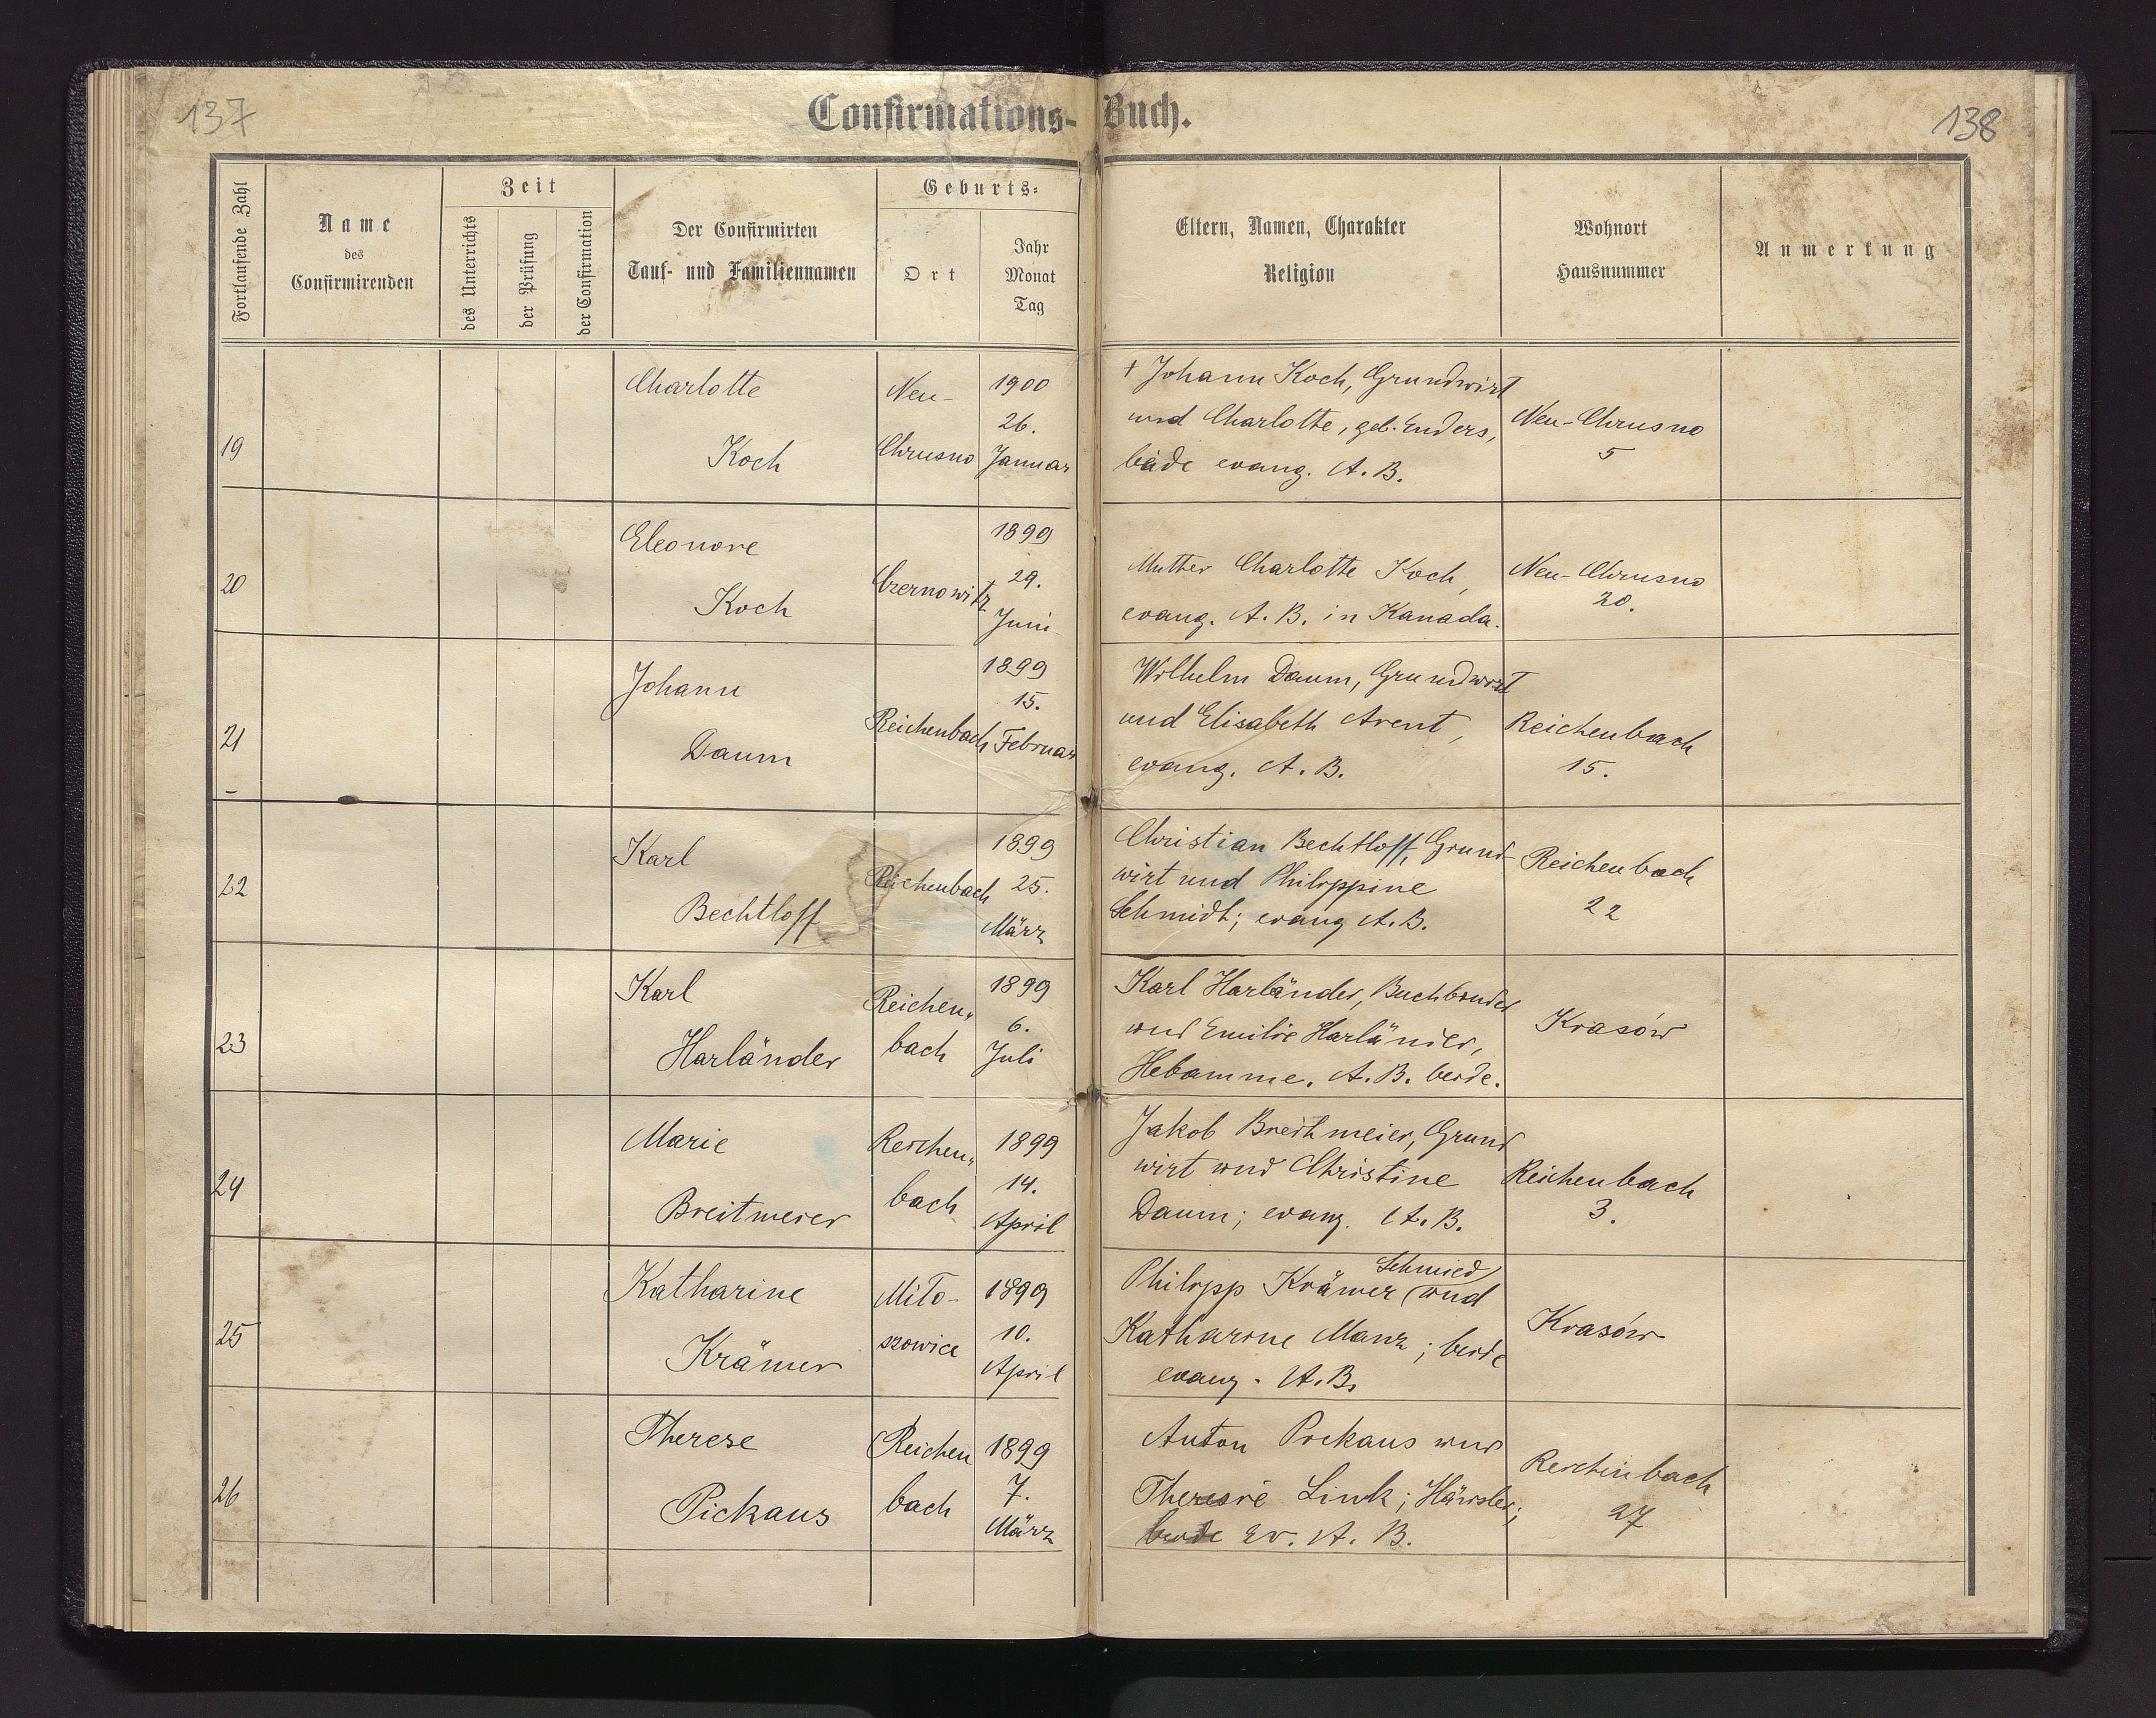 137
Confirmations-Buch.
138
Fortlaufende Zahl
Name
des
Confirmirenden
Zeit
des Unterrichts
der Prüfung
der Confirmation
Der Confirmirten
Tauf- und Familiennamen
Geburts-
Ort
Jahr
Monat
Tag
Eltern, Namen, Charakter
Religion
Wohnort
Hausnummer
Anmerkung
19
Charlotte
Koch
Neu-
Chrusno
1900
26.
Januar
+ Johann Koch, Grundwirt
und Charlotte, geb. Enders,
beide evang. A. B.
Neu-Chrusno
5
20
Eleonore
Koch
Czernowitz
1899
29.
Juni
Mutter Charlotte Koch,
evang. A. B. in Kanada.
Neu-Chrusno
20.
21
Johann
Daum
Reichenbach
1899
15.
Februar
Wilhelm Daum, Grundwirt
und Elisabeth Arent,
evang. A. B.
Reichenbach
15.
22
Karl
Bechtloff
Reichenbach
1899
25.
März
Christian Bechtloff, Grund-
wirt und Philippine
Schmidt; evang A. B.
Reichenbach
22
23
Karl
Harländer
Reichen"
bach
1899
6.
Juli
Karl Harländer, Buchbinder
und Emilie Harländer,
Hebamme. A. B. beide.
Krasów
24
Marie
Breitmeier
Reichen"
bach
1899
14.
April
Jakob Breithmeier, Grund
wirt und Christine
Daum; evang. A. B.
Reichenbach
3.
25
Katharine
Krämer
Miło-
szowice
1899
10.
April
Schmied
Philipp Krämer (und
Katharine Manz; beide
evang. A. B.
Krasów
26
Therese
Pickaus
Reichen
bach
1899
7.
März
Anton Pickaus und
Link; Häusler;
beide ev. A. B.
Reichenbach
27